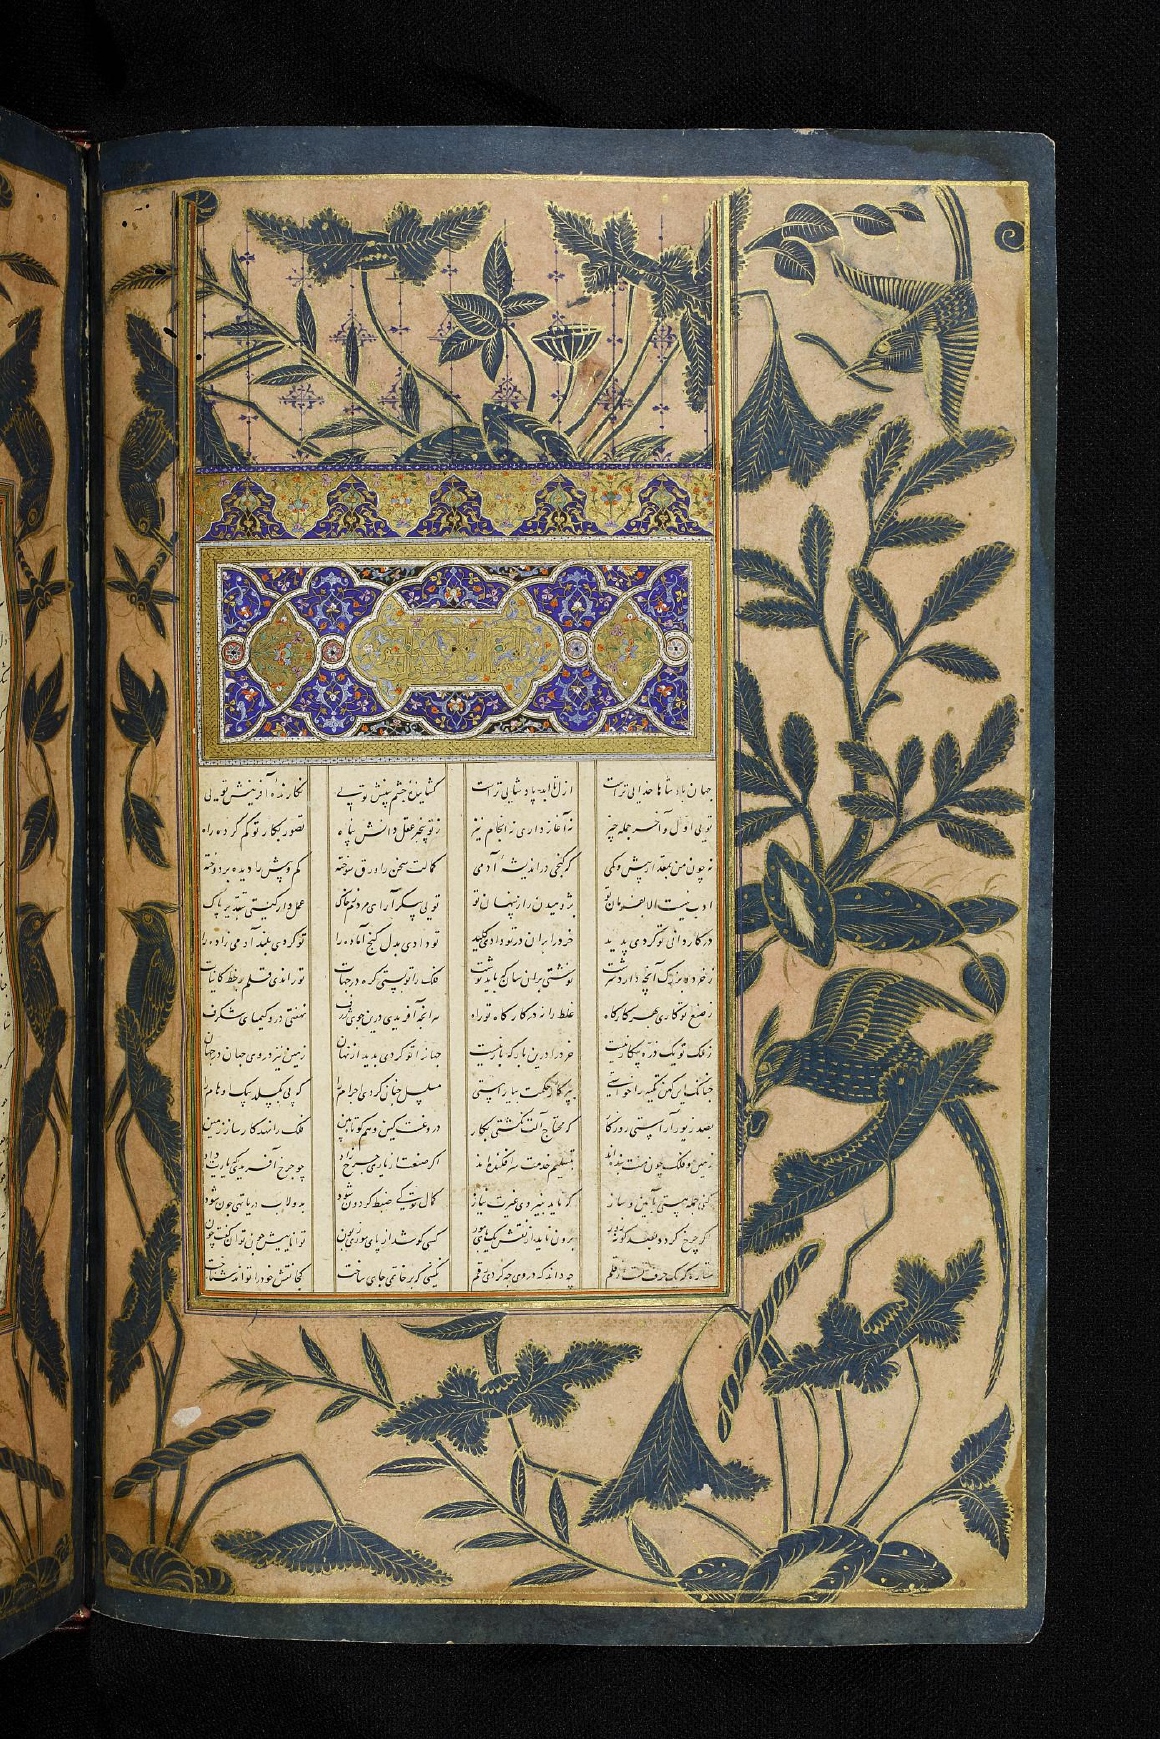 جهان پادشاها خدایی تراست ازل تا ابد پادشایی تراست گشاینده چشم بینش تویی نگارنده آفرینش تویی
تویی اول و آخر جمله چیز نه آغاز داری نه انجام نیز ز تو عقل دانش پناه تصور بکار تو گم کرده راه
نه چون من بیش و کمی که گنجی در اندیشه آدمی کمالت سخن را ورق سوخته کم و بیش را دیده بردوخته
ادب نیست الا بفرمان تو پژوهیدن راز پنهان تو تویی پیکر آرای مردم ز خاک عمل دار گیتی بتقدیر پاک
در کاردانی تو کردی پدید خرد را بران در تو دادی کلید تو دادی بدل گنج آماده را تو کردی بلند آدمی زاده را
ز خرد و بزرگ آنچه دارد سرشت نوشتی بران سان که باید نوشت فلک را تو بستی گره در جهات تو راندی قلم بر خط کاینات
ز صنع تو کاری بهر کارگاه غلط را نه در کارگاه تو راه هر آنچه آفریدی درین ژرف نهفتی درو کیمیای شگرف
ز ملک تو یک ذره بیکار نیست خرد را درین بارگه بار نیست جهانی تو کردی پدید از نهان زمین نیز در وی جهان در جهان
چنانک این خواستی بپرگار حکمت بیاراستی مسلسل چنان کردی اجرام را که پی بگسلد پیک اوهام را
بصد زیور آراستی روزگار که محتاج آلت نگشتی بکار کین وهم کوتاه بین فلک را نهد کارساز زمین
زمین و فلک چون بنده اند بتسلیم خدمت سرافکنده اند اگر صنعت از یاری چرخ زاد چو چرخ آفریدی که یاریت داد
کنی جمله هستی بآیین و ساز که ناید بنیروی غیرت نیاز کمال تو کی ضبط گردون شود بدولاب دریا تهی چون شود
اگر چرخ گردد بصد گونه زور برون ناید از نقش یک پای مور کسی کو شد از پای موری زبون توانا بیش چون توان گفت چون
ستاره که یک حرف قلم چه داند که در وی چه کردی رقم نگینی که بر خاتمی جای ساخت کجا نقش خود را تواند شناخت